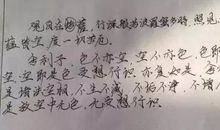 观自在菩萨,行深般若波罗蜜多时,照见
蕴皆空度一切苦厄。
舍利子,色不亦空,空不亦色,色即
空,空即是色受想行识,亦复如是,舍
是诸法空相,不生不灭,不垢不净,不增
是故空中无色,无受想行识。